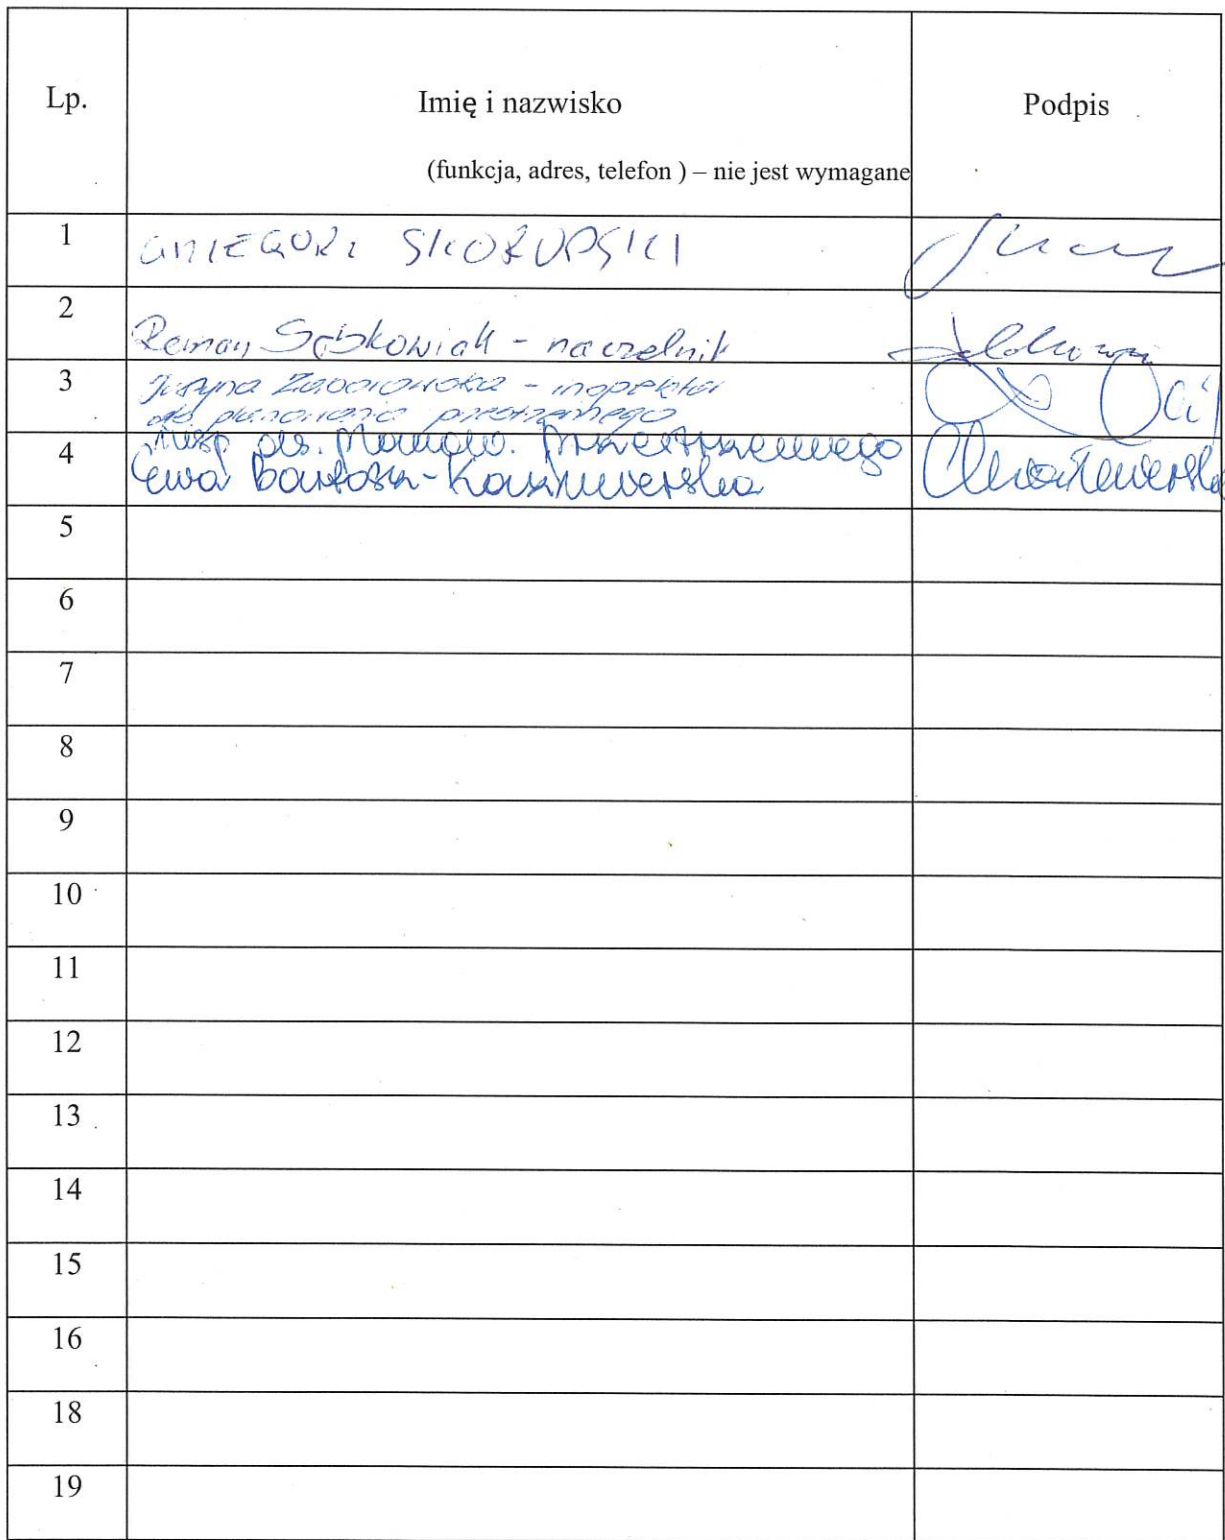 Lp. Imię i nazwisko Podpis
(funkcja, adres, telefon ) – nie jest wymagane
1 GRZEGORZ SKORUPSKI
2 Roman Sobkowiak - naczelnik
3 Justyna - inspektor
ds planowania przestrzennego
4 insp ds. Przestrzennego
Ewa Bartosz-Kazimierska
5
6
7
8
9
10
11
12
13
14
15
16
18
19